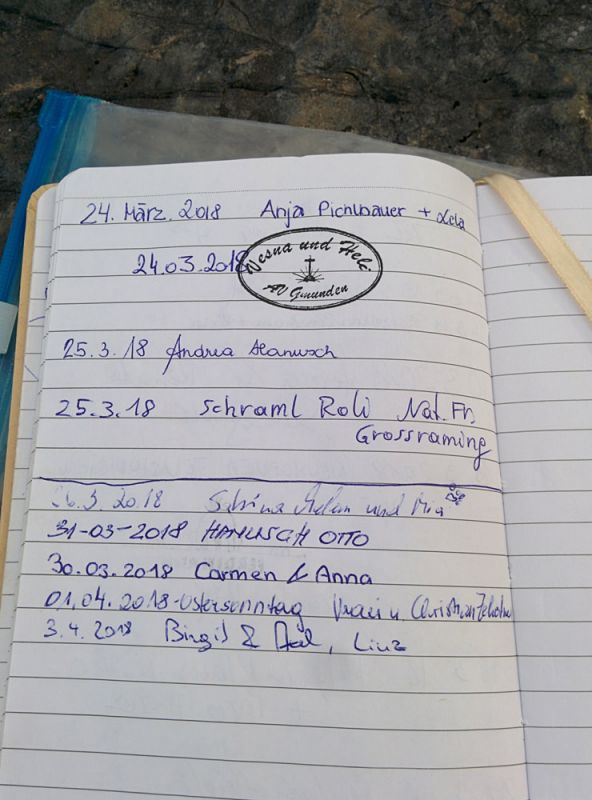 24. März. 2018 Anja Pichlbauer + Lela
24.03.2018 Vesna und Heli
AV Gmunden
25.3.18 Andrea Hanusch
25.3.18 Schraml Roli Nat. Fr.
Grossraming
26.3.2018 Sabrina und Mia
31-03-2018 HANUSCH OTTO
30.03.2018 Carmen & Anna
01.04.2018-Ostersonntag u. Christian
3.4.2018 Birgit & , Linz